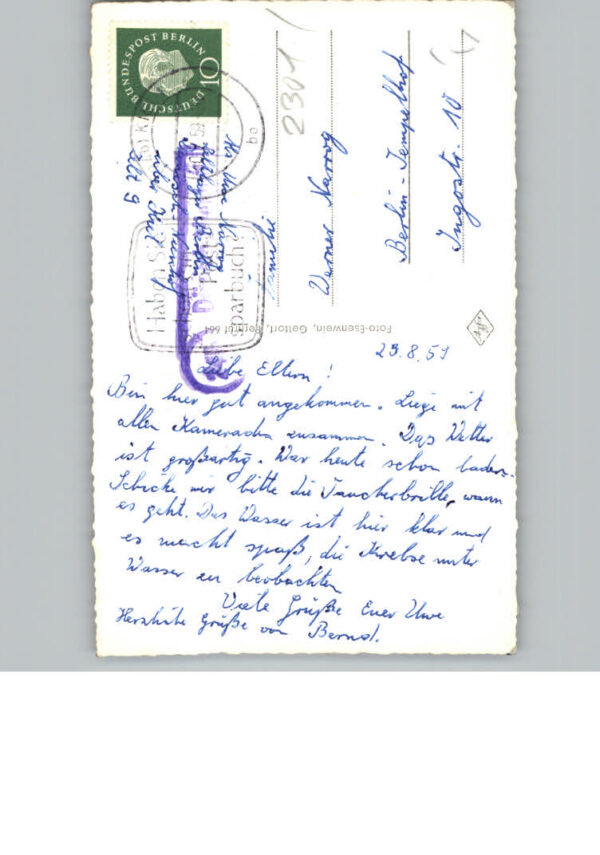 DEUTSCHE BUNDESPOST BERLIN
10
2301
Familie
Werner Nawog
Berlin-Tempelhof
Ingostr. 10
Haben Sie
Post
sparbuch?
Zelt 9
Foto-Esenwein, Gettorf, Fernruf 661
Agfa
23.8.59
Liebe Eltern!
Bin hier gut angekommen. Liege mit
allen Kameraden zusammen. Das Wetter
ist großartig. War heute schon baden.
Schicke mir bitte die Taucherbrille, wenn
es geht. Das Wasser ist hier klar und
es macht spaß, die Krebse unter
Wasser zu beobachten
Viele Grüße Euer Uwe
Herzliche Grüße von Bernd.